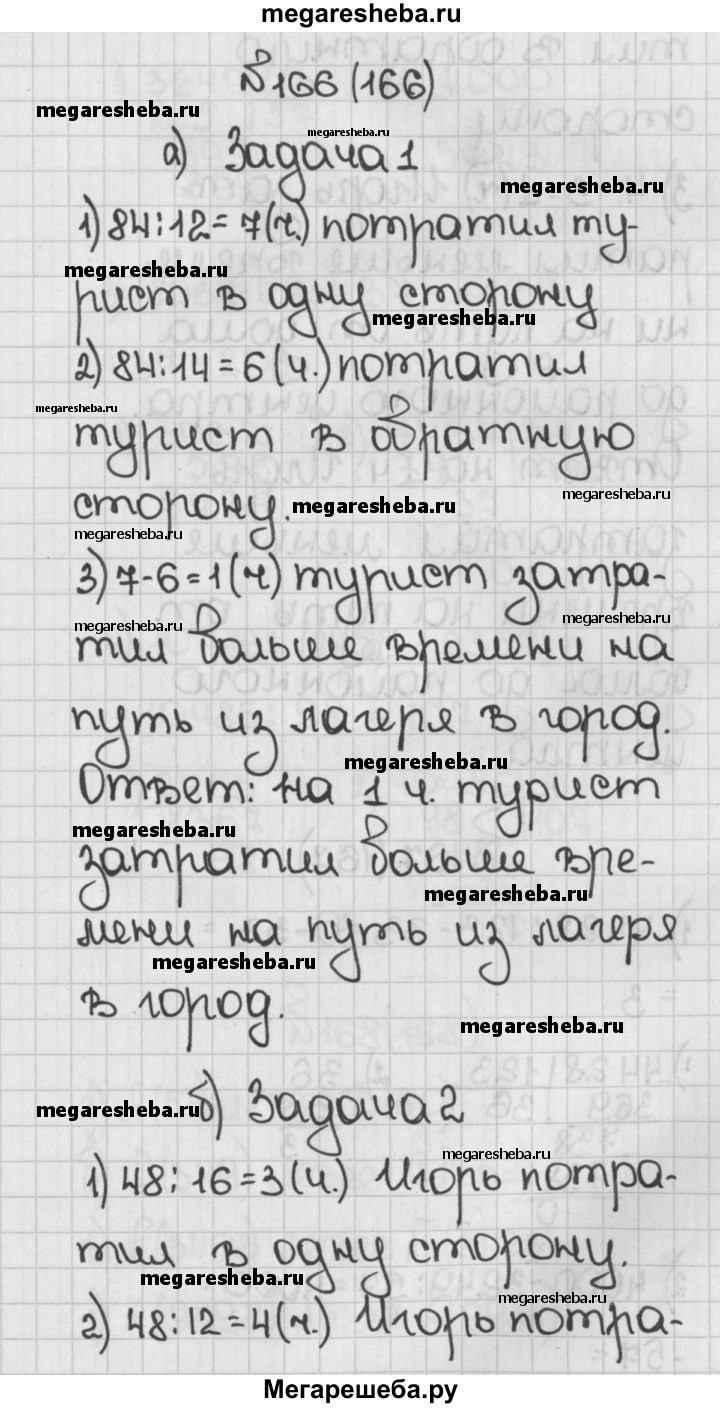 megaresheba.ru
№166 (166)
megaresheba.ru
megaresheba.ru
а) Задача 1
megaresheba.ru
1) 84:12=7(ч.) потратил ту-
megaresheba.ru
рист в одну сторону
megaresheba.ru
2) 84:14=6(ч.) потратил
megaresheba.ru
турист в обратную
megaresheba.ru
сторону.
megaresheba.ru
megaresheba.ru
3) 7-6=1(ч) турист затра-
megaresheba.ru
megaresheba.ru
тил больше времени на
путь из лагеря в город.
megaresheba.ru
Ответ: на 1 ч. турист
megaresheba.ru
затратил больше вре-
megaresheba.ru
мени на путь из лагеря
megaresheba.ru
в город.
megaresheba.ru
megaresheba.ru
б) Задача 2
megaresheba.ru
1) 48:16=3(ч.) Игорь потра-
тил в одну сторону.
megaresheba.ru
megaresheba.ru
2) 48:12=4(ч.) Игорь потра-
Мегарешеба.ру